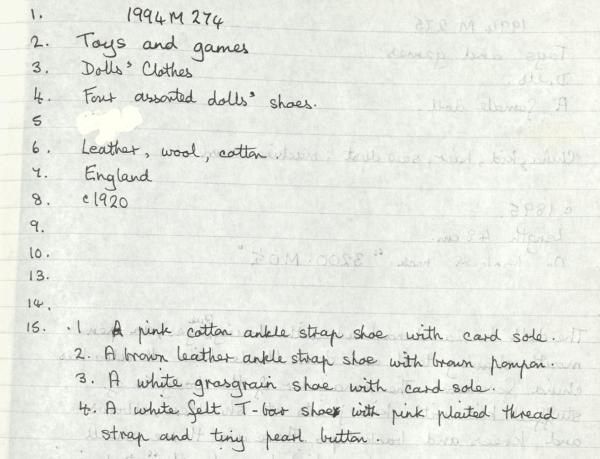 1. 1994 M 274
2. Toys and games
3. Dolls' Clothes
4. Four assorted dolls' shoes.
5
6. Leather, wool, cotton.
7. England
8. c1920
9.
10.
13.
14.
15. .1 A pink cotton ankle strap shoe with card sole.
2. A brown leather ankle strap shoe with brown pompon.
3. A white grasgrain shoe with card sole.
4. A white felt T-bar shoe with pink plaited thread
strap and tiny pearl button.